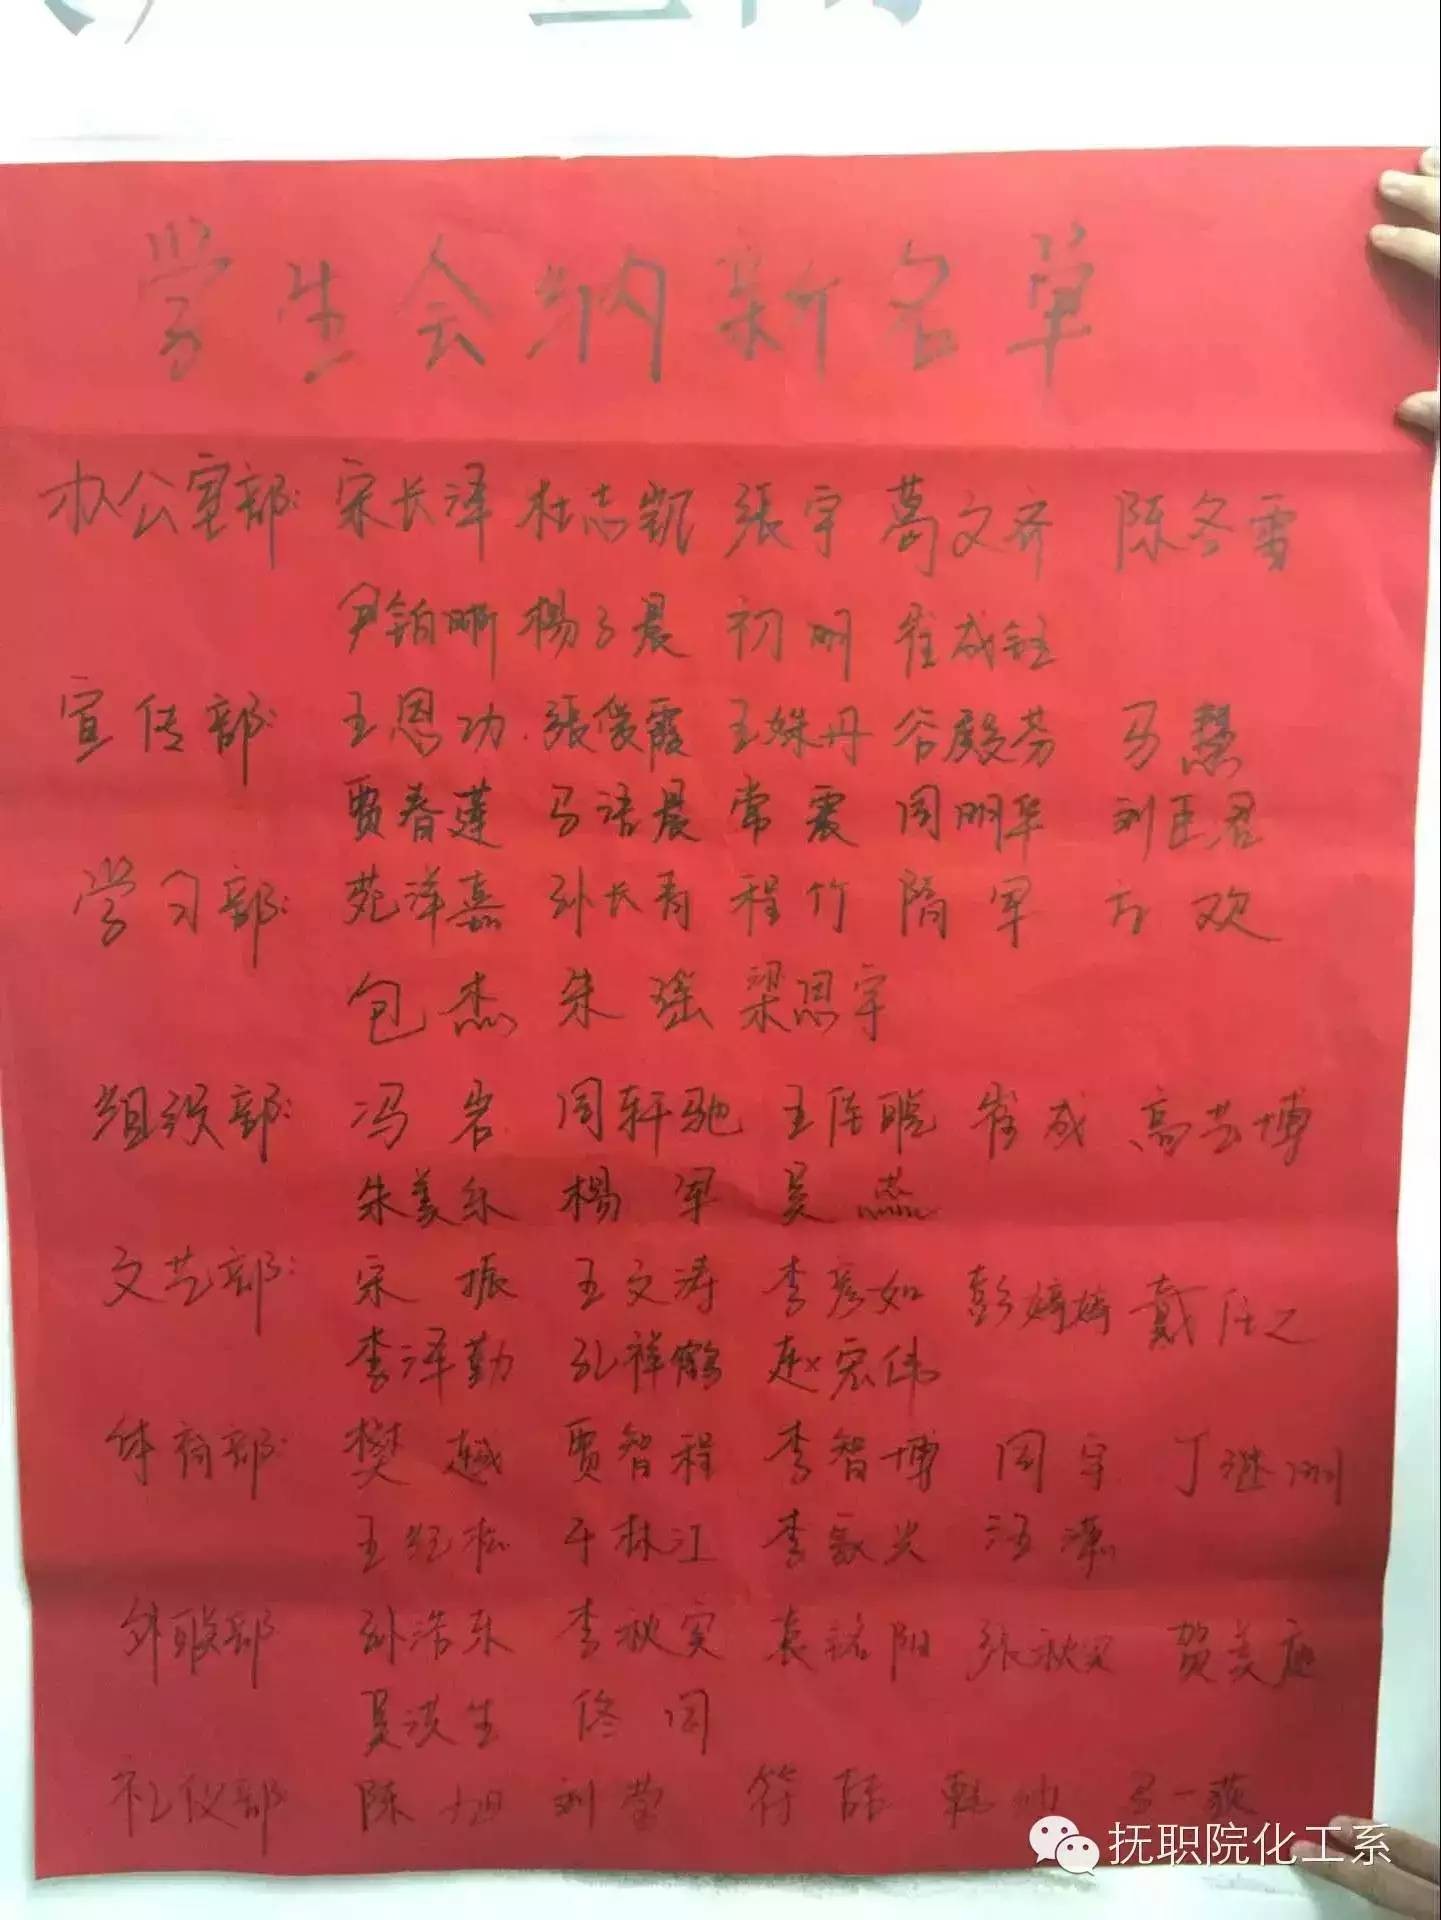 学生会纳新名单
办公室部: 宋长泽 杜志凯 張宇 葛文齐 陈冬雪
尹铂晰 楊子晨 初明 崔成钰
宣传部: 王恩功 張俊霞 王姝丹 谷殿芬 马慧
贾春莲 马语晨 常震 周明华 刘臣君
学习部: 苑洋嘉 孙长青 程竹 隋军 方欢
包杰 朱瑶 梁恩宇
组织部: 冯岩 周轩驰 王 崔成 高艺博
朱美 楊军 吴蕊
文艺部: 宋振 王文涛 李彦如 彭婷婷 戴任之
李泽勤 孔祥鹤 赵宏伟
体育部: 樊越 贾智程 李智博 周宇 丁继洲
王红松 于林江 李家兴 汪
外联部 孙浩东 李秋实 袁铭阳 張秋 贺美
吴洪生 佟同
礼仪部 陈旭 刘莹 符 韩
抚职院化工系